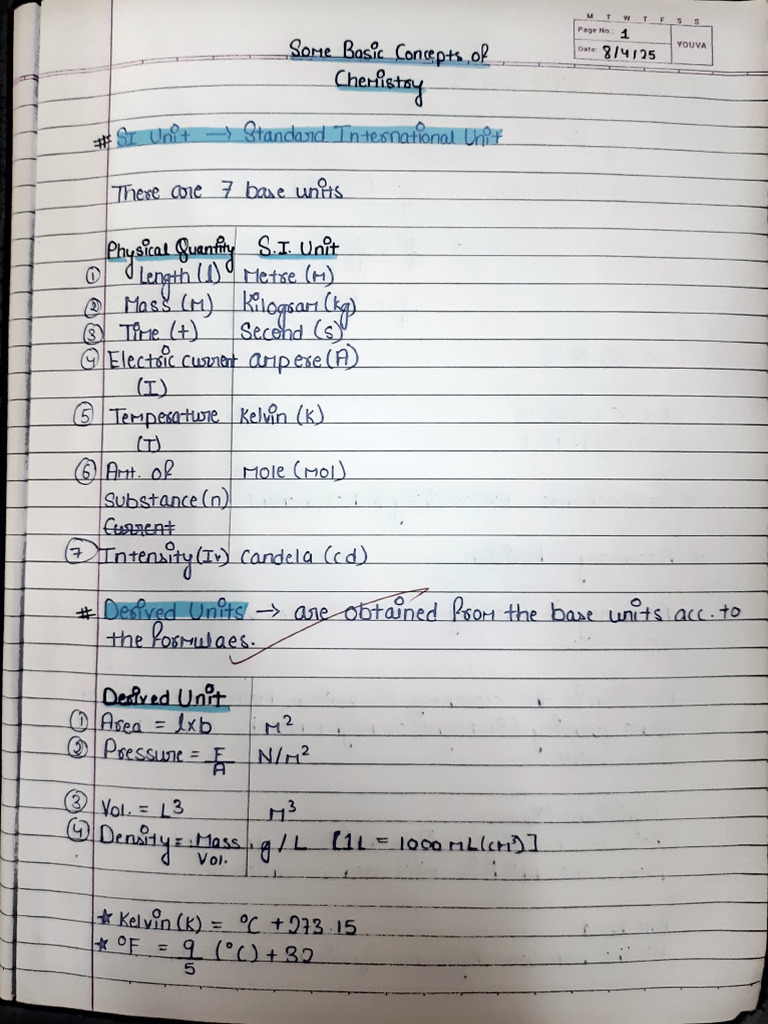 M T W T F S S
Page No.: 1
Date: 8/4/25
YOUVA
Some Basic Concepts of
Chemistry
# S.I. Unit → Standard International Unit
There are 7 base units
Physical Quantity S.I. Unit
① Length (l) Metre (M)
② Mass (M) Kilogram (kg)
③ Time (t) Second (s)
④ Electric current ampere (A)
(I)
⑤ Temperature Kelvin (K)
(T)
⑥ Amt. of Mole (Mol)
Substance (n)
Current
⑦ Intensity (Iv) Candela (cd)
# Derived Units → are obtained from the base units acc. to
the formulaes.
Derived Unit
① Area = l×b M²
② Pressure = F/A N/M²
③ Vol. = L³ M³
④ Density = Mass/Vol. g/L [1L = 1000 mL (cm³)]
* Kelvin (K) = °C + 273.15
* °F = 9/5 (°C) + 32